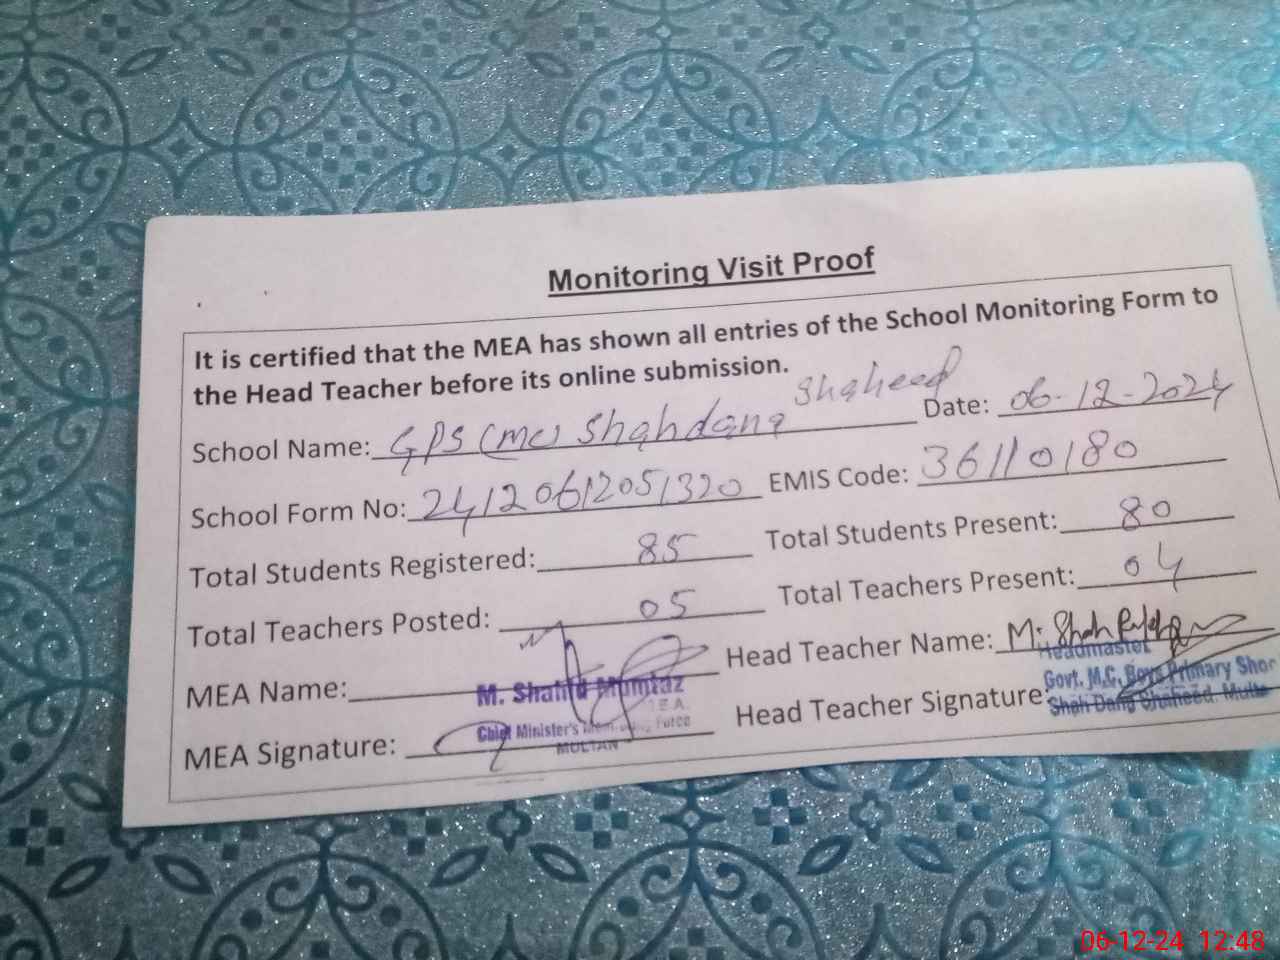 Monitoring Visit Proof
It is certified that the MEA has shown all entries of the School Monitoring Form to
the Head Teacher before its online submission.
School Name: GPS (MC) Shahdana Shaheed Date: 06-12-2024
School Form No: 24120612051320 EMIS Code: 36110180
Total Students Registered: 85 Total Students Present: 80
Total Teachers Posted: 05 Total Teachers Present: 04
MEA Name: Head Teacher Name: M. Shah
M. Shahid Mumtaz
M.E.A.
Chief Minister's Monitoring Force
MULTAN
MEA Signature: Head Teacher Signature:
Headmaster
Govt. M.C. Boys Primary
Shah Dana Shaheed. Multan
06-12-24 12:48